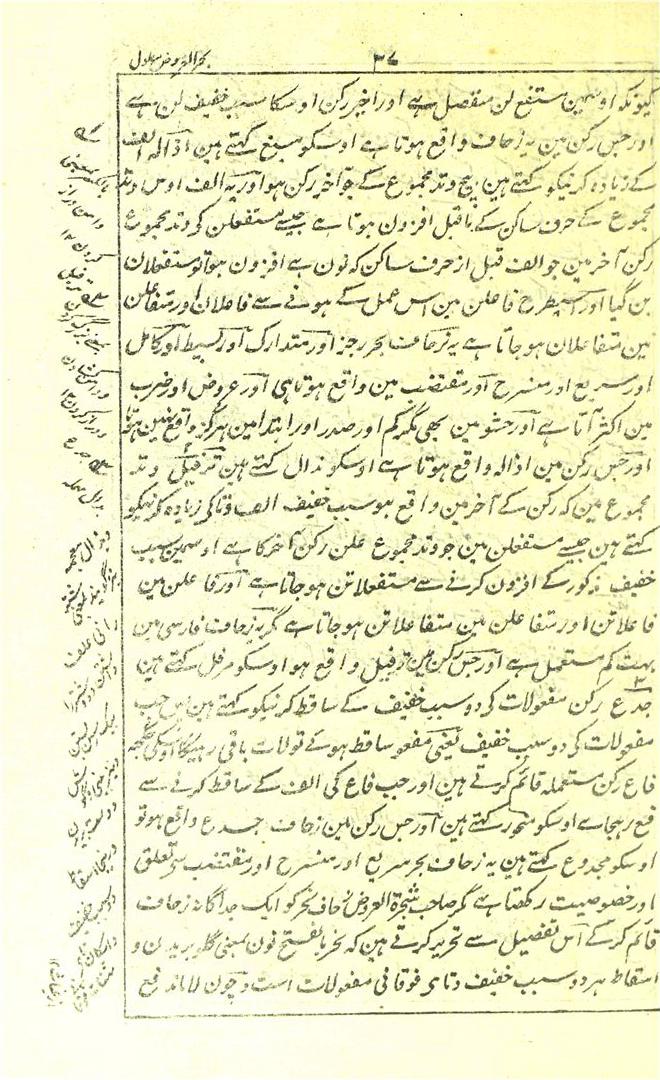 بحر العروض حصہ اول
۳۷
کیونکہ اوسمین مستفع لن منفصل ہے اور اخیر رکن اوسکا سبب خفیف لن ہے
اور جس رکن مین یہ زحاف واقع ہوتا ہے اوسکو مسبغ کہتے ہین اذالہ الف
کے زیادہ کرنیکو کہتے ہین بیچ وتد مجموع کے جو آخر رکن ہو اور یہ الف اوس وتد
مجموع کے حرف ساکن کے ماقبل افزون ہوتا ہے جیسے مستفعلن کو وتد مجموع
رکن آخر مین جو الف قبل از حرف ساکن کہ نون ہے افزون ہوا تو مستفعلان
بن گیا اور اسیطرح فاعلن مین اس عمل کے ہونے سے فاعلان اور متفاعلن
مین متفاعلان ہوجاتا ہے یہ زحاف بحر رجز اور متدارک اور بسیط اور کامل
اور سریع اور منسرح اور مقتضب مین واقع ہوتا ہی اور عروض اور ضرب
مین اکثر آتا ہے اور حشو مین بھی مگر کم اور صدر اور ابتدا مین ہرگز واقع نہین ہوتا
اور جس رکن مین اذالہ واقع ہوتا ہے اوسکو مذال کہتے ہین ترفیل وتد
مجموع مین کہ رکن کے آخر مین واقع ہو سبب خفیف الف و تا کی زیادہ کرنیکو
کہتے ہین جیسے مستفعلن مین جو وتد مجموع علن رکن آخر کا ہے اوسمین سبب
خفیف مذکور کے افزون کرنے سے مستفعلاتن ہوجاتا ہے اور فاعلن مین
فاعلاتن اور متفاعلن مین متفاعلاتن ہوجاتا ہے مگر یہ زحاف فارسی مین
بہت کم مستعمل ہے اور جس رکن مین ترفیل واقع ہو اوسکو مرفل کہتے ہین
جدع رکن مفعولات کی دو سبب خفیف کے ساقط کرنیکو کہتے ہین پس جب
مفعولات کی دو سبب خفیف یعنی مفعو ساقط ہوئے تو لات باقی رہیگا اوسکی جگہہ
فاع رکن مستعملہ قائم کرتے ہین اور جب فاع کی الف کے ساقط کرنے سے
فع رہجاے اوسکو منحور کہتے ہین اور جس رکن مین زحاف جدع واقع ہو تو
اوسکو مجدوع کہتے ہین یہ زحاف بحر سریع اور منسرح اور مقتضب سے تعلق
اور خصوصیت رکھتا ہے مگر صاحب شجرۃ العروض زحاف نحر کو ایک جداگانہ زحاف
قائم کر کے اس تفصیل سے تحریر کرتے ہین کہ نحر بالفتح نون بمعنی گلو بریدن و
اسقاط ہر دو سبب خفیف و تای فوقانی مفعولات است و چون لا ماند فع